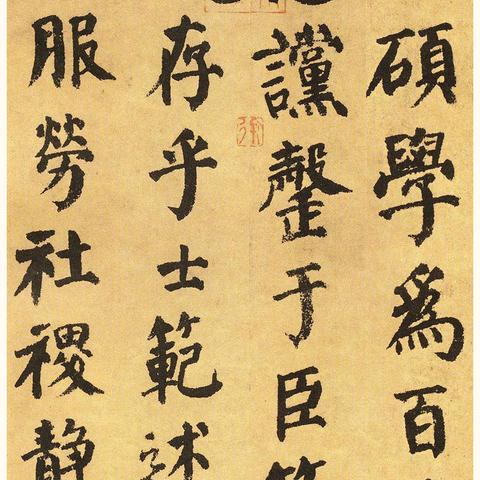 碩學爲百
讜罄于臣
存乎士範述
服勞社稷靜